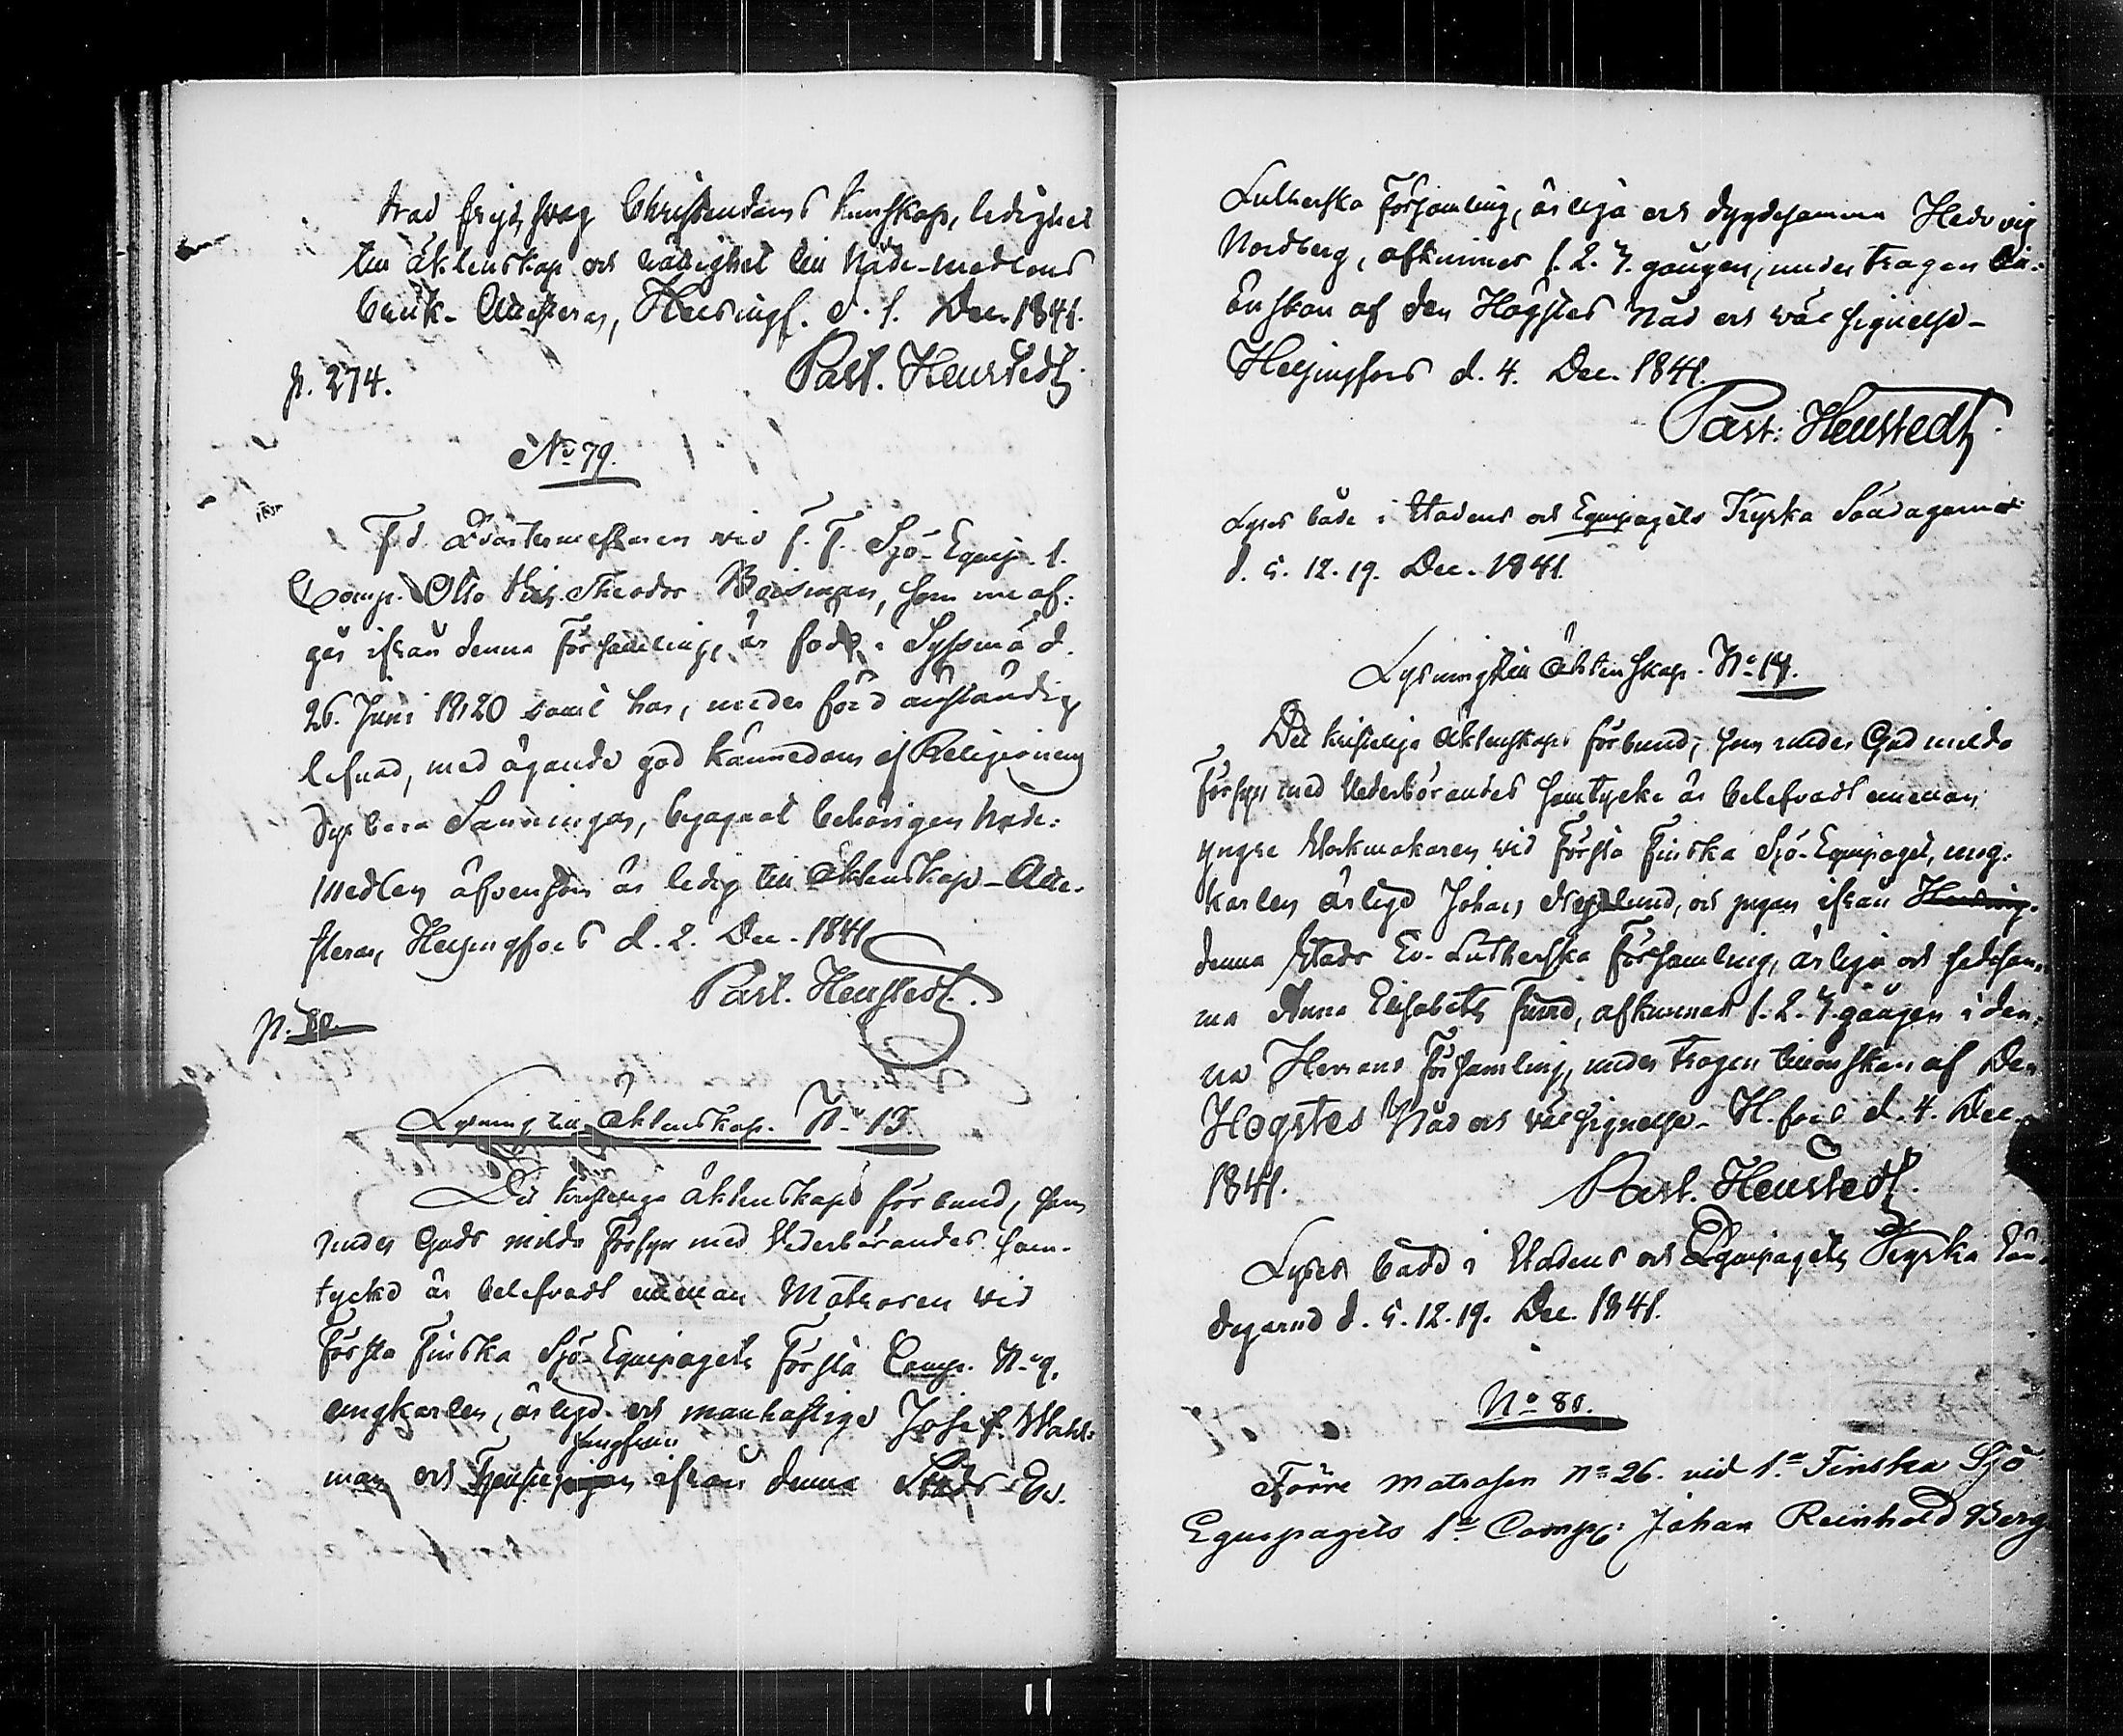 trad frejd, svag Christendoms kunskap, ledighet
till äktenskap och rättighet till Nåde-medlens
bruk. Attesteras, Helsingf. d. 1. Dec. 1841.
Past. Heurstedt
p. 274.
No 79.
Fd Quartermästaren vid f. F. Sjö-Equip. 1.
Comp. Otto Theodor som nu af:
går ifrån denna Församling, är född i Sysmä d.
26. Juni 1820 samt har, under förd anständig
lefnad, med ägande god kännedom af Religionens
dyrbara Sanningar, begagnat behörigen Nåde:
medlen äfvensom är ledig till äktenskap - Atte-
steras, Helsingfors d. 2. Dec. 1841
Past. Heurstedt.
p. 80.
Lysning till äktenskap. No 13.
Det kristeliga äktenskaps förbund, som
under Guds milda Försyn med Vederbörandes sam-
tycke är belefvadt emellan Matrosen vid
Första Finska Sjö-Equipagets Första Comp. No 9.
ungkarlen, ärlige och manhaftige Josef Wahl:
Jungfrun
man och ifrån denna Stads Ev.
Lutherska Församling, ärliga och dygdesamma Hedvig
Nordberg, afkunnes 1. 2. 3. gången, under trogen till-
önskan af den Högstes Nåd och välsignelse -
Helsingfors d. 4. Dec. 1841.
Past: Heurstedt
Lyses både i Stadens och Equipagets Kyrka Söndagarne
d. 5. 12. 19. Dec. 1841.
Lysning till äktenskap. No 14.
Det kristeliga äktenskaps förbund, som under Gud milda
Försyn med Vederbörandes samtycke är belefvadt emellan
yngre Blockmakaren vid Första Finska Sjö-Equipaget, ung-
karlen ärlige Johan och pigan ifrån Helsing-
denna Stads Ev. Lutherska Församling, ärliga och sedesam-
ma Anna Elisabeth afkunnas 1. 2. 3. gången i den-
na Herrans församling, under trogen tillönskan af Den
Högstes Nåd och välsignelse - H.fors d. 4. Dec.
1841.
Past. Heurstedt.
Lyses både i Stadens och Equipagets Kyrka Sön-
dagarne d. 5. 12. 19. Dec. 1841.
No 80.
Förre matrosen No 26. vid 1a Finska Sjö
Equipagets 1a Comp: Johan Reinhold Berg